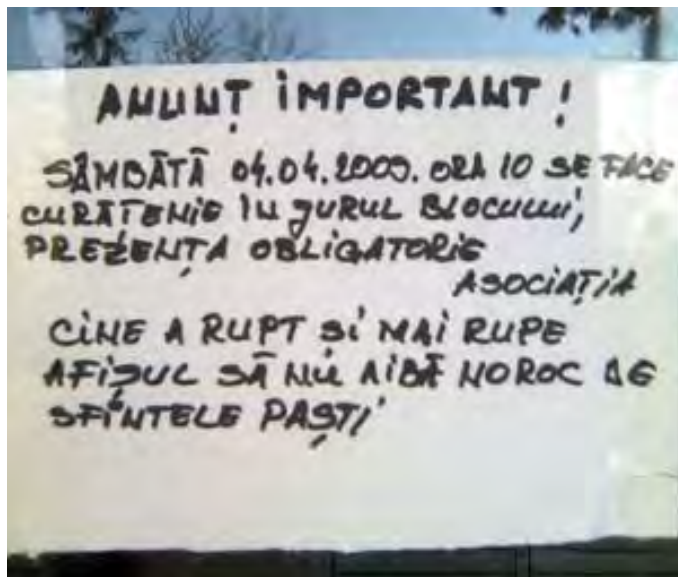 ANUNȚ IMPORTANT !
SÂMBĂTĂ 04.04.2009. ORA 10 SE FACE
CURĂȚENIE ÎN JURUL BLOCULUI,
PREZENȚA OBLIGATORIE
ASOCIAȚIA
CINE A RUPT ȘI MAI RUPE
AFIȘUL SĂ NU AIBĂ NOROC DE
SFINTELE PAȘTI